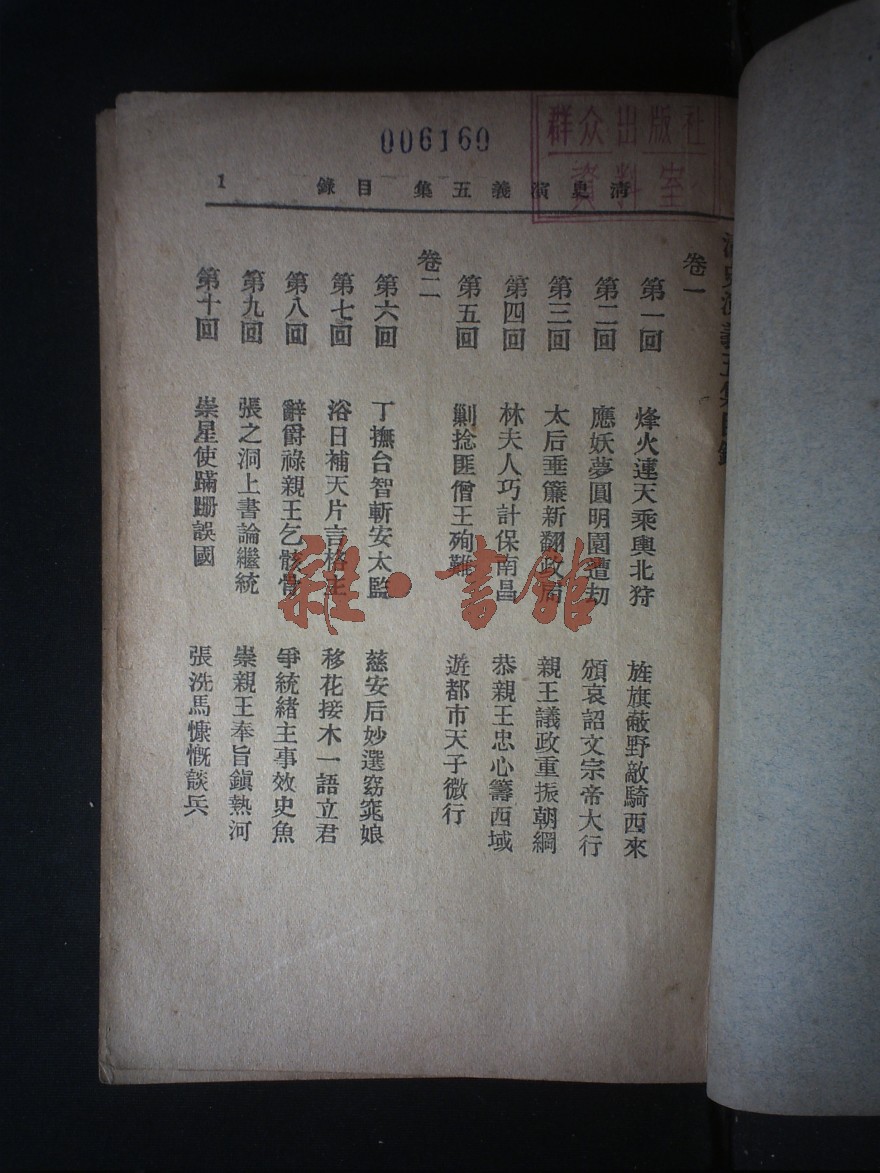 006160
群众出版社
資料室
清史演義五集 目錄 1
清史演義五集目錄
卷一
第一回 烽火連天乘輿北狩 旌旗蔽野敵騎西來
第二回 應妖夢圓明園遭刧 頒哀詔文宗帝大行
第三回 太后垂簾新翻政局 親王議政重振朝綱
第四回 林夫人巧計保南昌 恭親王忠心籌西域
第五回 剿捻匪僧王殉難 遊都市天子微行
卷二
第六回 丁撫台智斬安太監 慈安后妙選窈窕娘
第七回 浴日補天片言格主 移花接木一語立君
第八回 辭爵祿親王乞骸骨 爭統緒主事效史魚
第九回 張之洞上書論繼統 崇親王奉旨鎭熱河
第十回 崇星使蹣跚誤國 張洗馬慷慨談兵
雜·書館